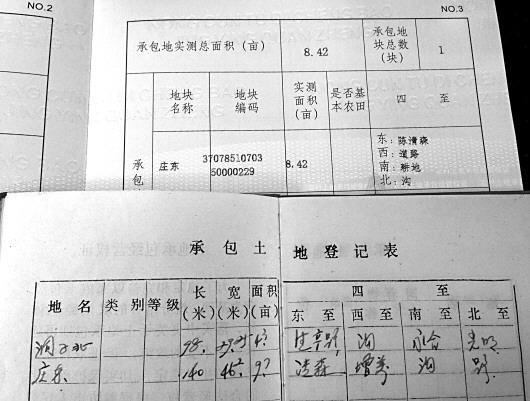 NO.2
NO.3
承包地实测总面积（亩） 8.42 承包地块总数（块） 1
地块名称 地块编码 实测面积（亩） 是否基本农田 四 至
承包 庄东 3707851070350000229 8.42 东：陈清森
西：道路
南：耕地
北：沟
承 包 土 地 登 记 表
地 名 类 别 等 级 长（米） 宽（米） 面积（亩） 四 至
东 至 西 至 南 至 北 至
98. 沟
庄东 140 浩森 沟